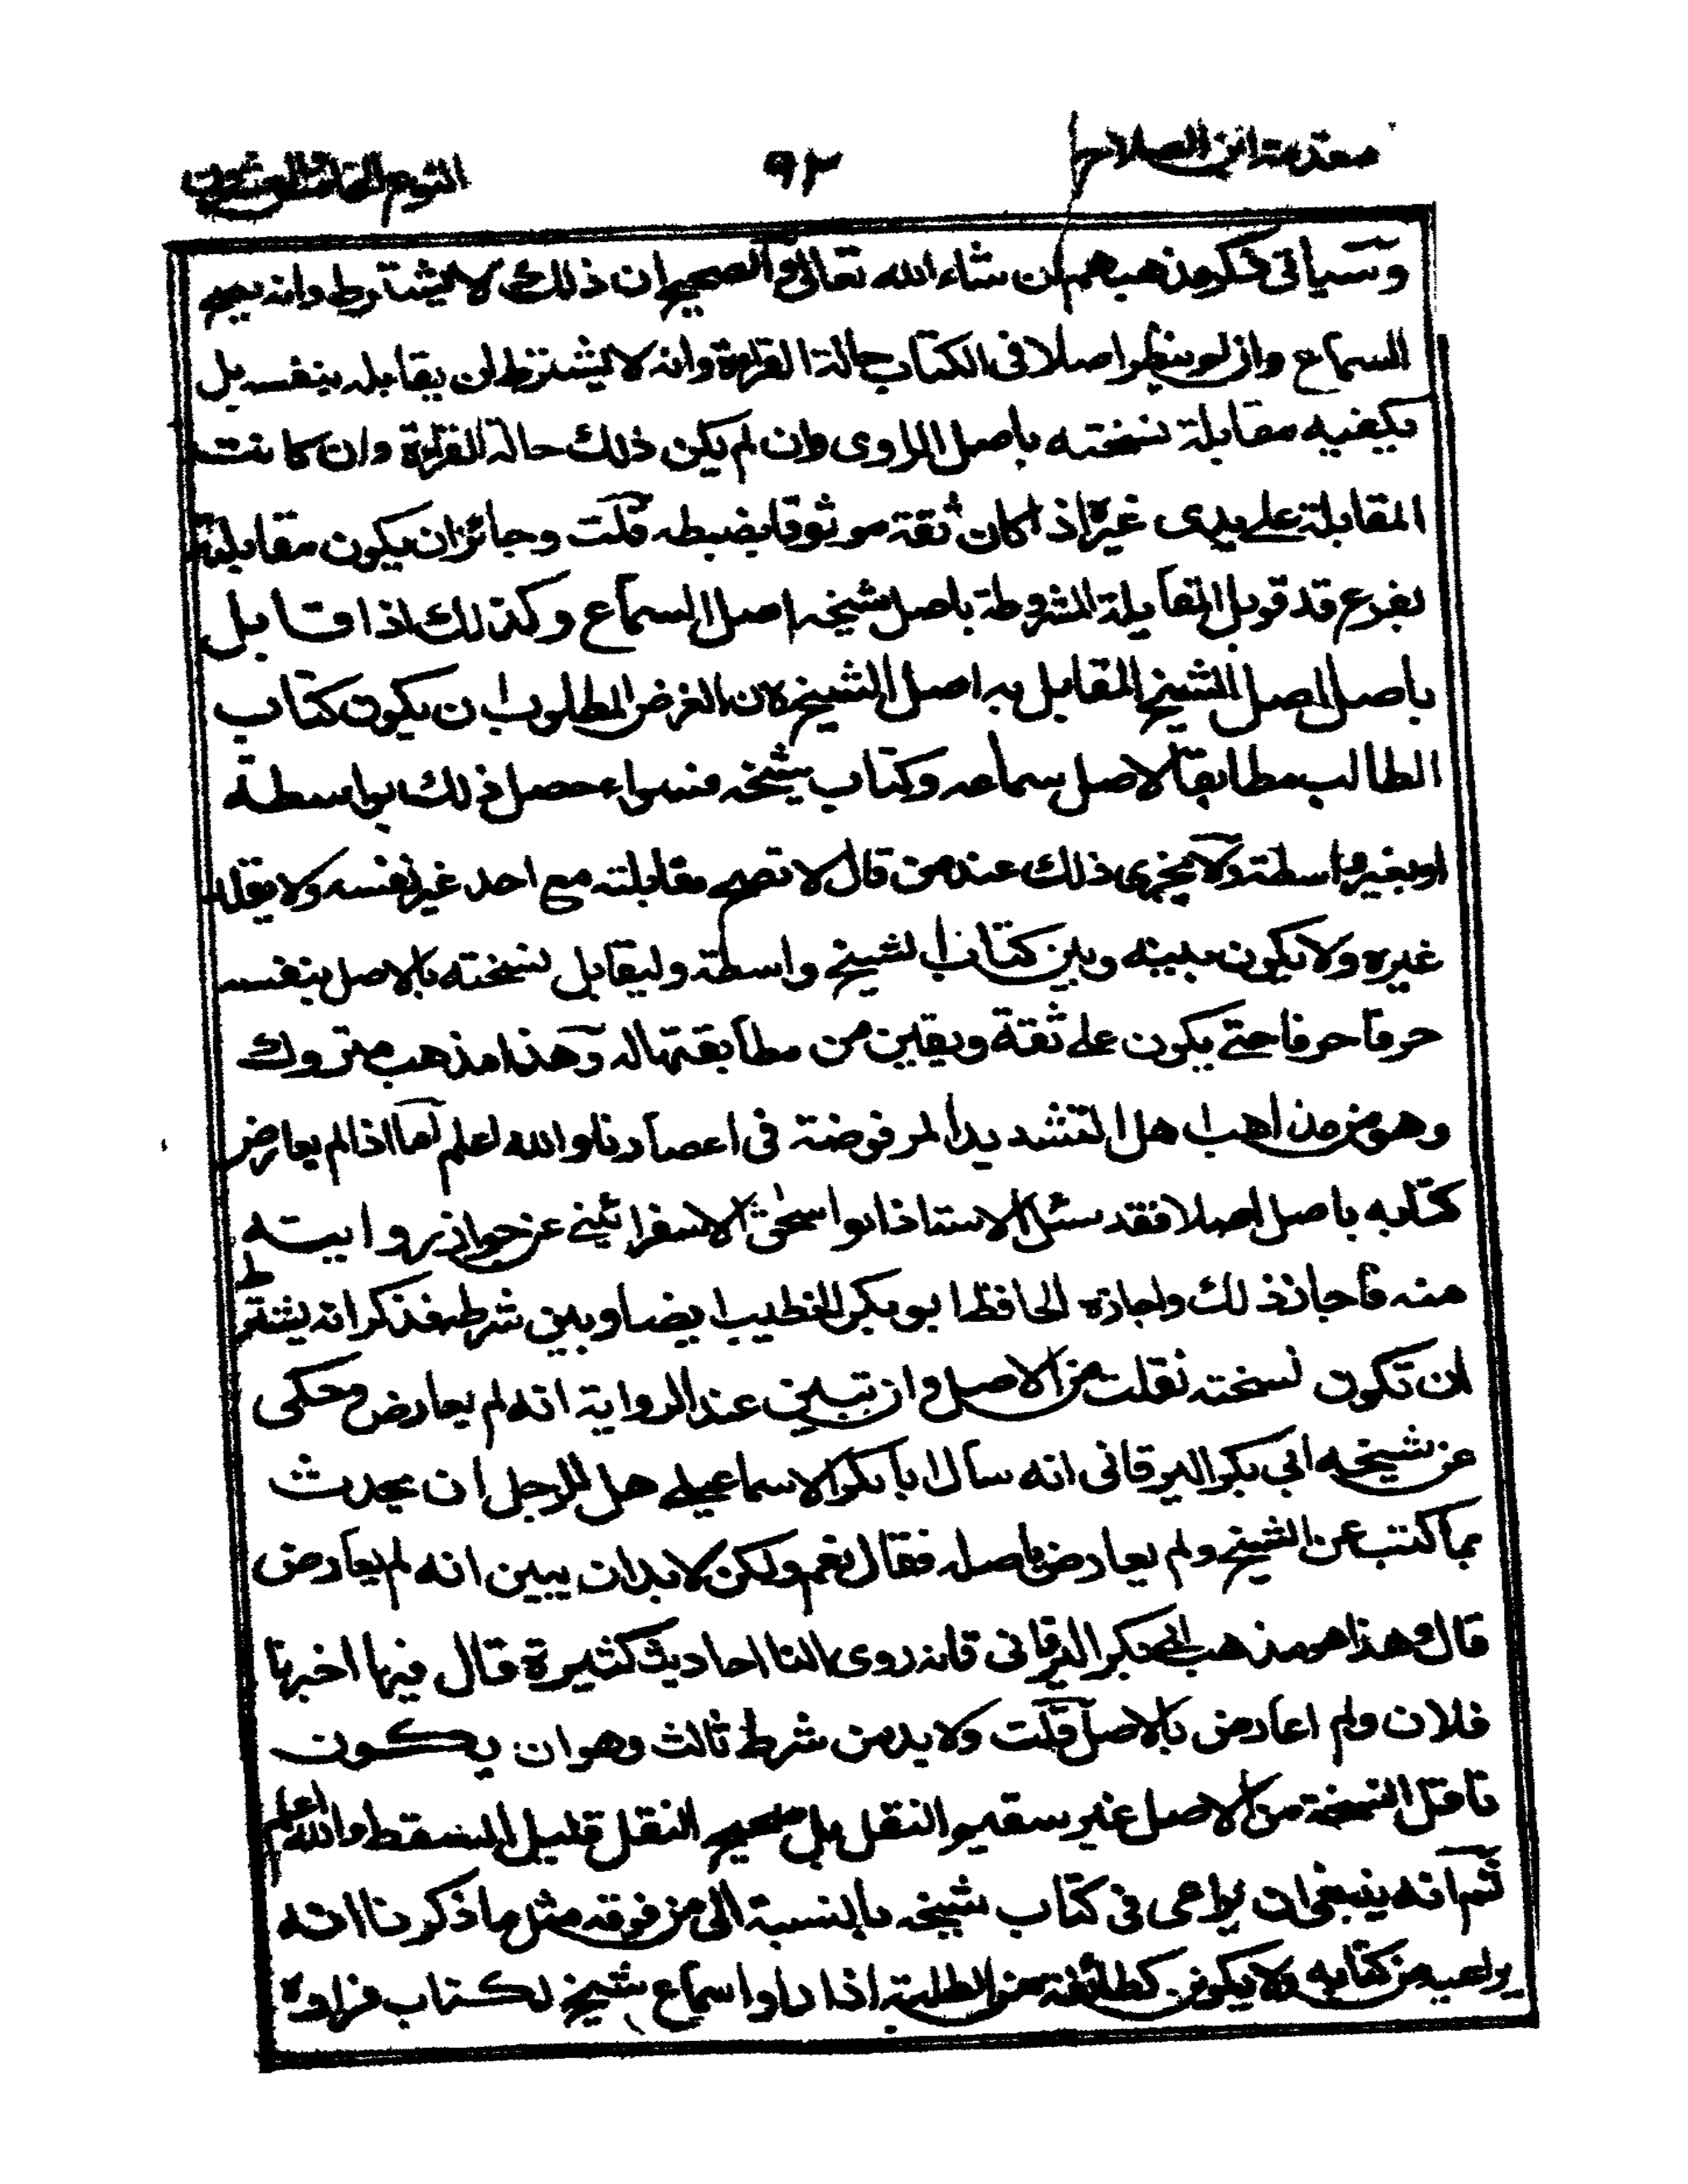 مقدمة ابن الصلاح
٩٢
النوع الخامس والعشرون
وسياتى ذكر مذهبهم ان شاء الله تعالى والصحيح ان ذلك لا يشترط وانه يصح
السماع وان لم ينظر اصلا فى الكتاب حالة القراءة وانه لا يشترط ان يقابله بنفسه بل
يكفيه مقابلة نسخته باصل الراوى وان لم يكن ذلك حالة القراءة وان كانت
المقابلة على يدى غيره اذا كان ثقة موثوقا بضبطه قلت وجائز ان يكون مقابلته
بفرع قد قوبل المقابلة المشروطة باصل شيخه اصل السماع وكذلك اذا قابل
باصل اصل الشيخ المقابل به اصل الشيخ لان الغرض المطلوب ان يكون كتاب
الطالب مطابقا لاصل سماعه وكتاب شيخه فسواء حصل ذلك بواسطة
او بغير واسطة ولا يجزى ذلك عند من قال لا تصح مقابلته مع احد غير نفسه ولا يقلد
غيره ولا يكون بينه وبين كتاب الشيخ واسطة وليقابل نسخته بالاصل بنفسه
حرفا حرفا حتى يكون على ثقة ويقين من مطابقتها له وهذا مذهب متروك
وهو من مذاهب اهل التشديد المرفوضة فى اعصارنا والله اعلم اما اذا لم يعارض
كتابه باصل اصلا فقد سئل الاستاذ ابو اسحق الاسفرائينى عن جواز روايته
منه فاجاز ذلك واجازه الحافظ ابو بكر الخطيب ايضا وبين شرطه فذكر انه يشترط
ان تكون نسخته نقلت من الاصل وان تبين عند الرواية انه لم يعارض وحكى
عن شيخه ابى بكر البرقانى انه سال ابا بكر الاسماعيلى هل للرجل ان يحدث
بما كتب عن الشيخ ولم يعارض باصله فقال نعم ولكن لا بد ان يبين انه لم يعارض
قال وهذا هو مذهب ابى بكر البرقانى فانه روى لنا احاديث كثيرة قال فيها اخبرنا
فلان ولم اعارض بالاصل قلت ولا بد من شرط ثالث وهو ان يكون
ناقل النسخة من الاصل غير سقيم النقل بل صحيح النقل قليل السقط والله اعلم
ثم انه ينبغى ان يراعى فى كتاب شيخه بالنسبة الى من فوقه مثل ما ذكرنا انه
يراعيه من كتابه ولا يكون كطائفة من الطلبة اذا راوا سماع شيخ لكتاب قراوه